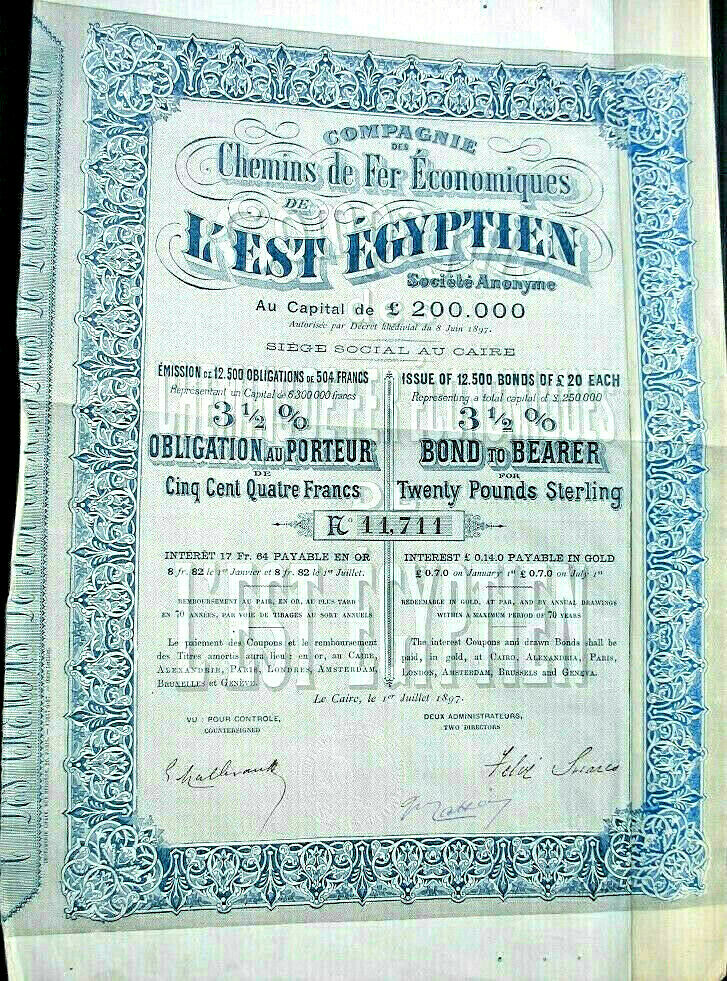 COMPAGNIE
DES
Chemins de Fer Économiques
DE
L'EST ÉGYPTIEN
Société Anonyme
Au Capital de £ 200.000
Autorisée par Décret Khédivial du 8 Juin 1897.
SIÈGE SOCIAL AU CAIRE
ÉMISSION DE 12.500 OBLIGATIONS DE 504 FRANCS
Représentant un Capital de 6300000 francs
3 ½ %
OBLIGATION AU PORTEUR
DE
Cinq Cent Quatre Francs
ISSUE OF 12.500 BONDS OF £ 20 EACH
Representing a total capital of £.250.000
3 ½ %
BOND TO BEARER
FOR
Twenty Pounds Sterling
No 11,711
INTÉRÊT 17 Fr. 64 PAYABLE EN OR
8 fr. 82 le 1er Janvier et 8 fr. 82 le 1er Juillet.
REMBOURSEMENT AU PAIR, EN OR, AU PLUS TARD
EN 70 ANNÉES, PAR VOIE DE TIRAGES AU SORT ANNUELS
Le paiement des Coupons et le remboursement
des Titres amortis aura lieu: en or, au CAIRE,
ALEXANDRIE, PARIS, LONDRES, AMSTERDAM,
BRUXELLES et GENÈVE.
INTEREST £ 0.14.0 PAYABLE IN GOLD
£ 0.7.0 on January 1st £ 0.7.0 on July 1st
REDEEMABLE IN GOLD, AT PAR, AND BY ANNUAL DRAWINGS
WITHIN A MAXIMUM PERIOD OF 70 YEARS
The interest Coupons and drawn Bonds shall be
paid, in gold, at CAIRO, ALEXANDRIA, PARIS,
LONDON, AMSTERDAM, BRUSSELS and GENEVA.
Le Caire, le 1er Juillet 1897.
VU : POUR CONTROLE,
COUNTERSIGNED
DEUX ADMINISTRATEURS,
TWO DIRECTORS
Felix Suares